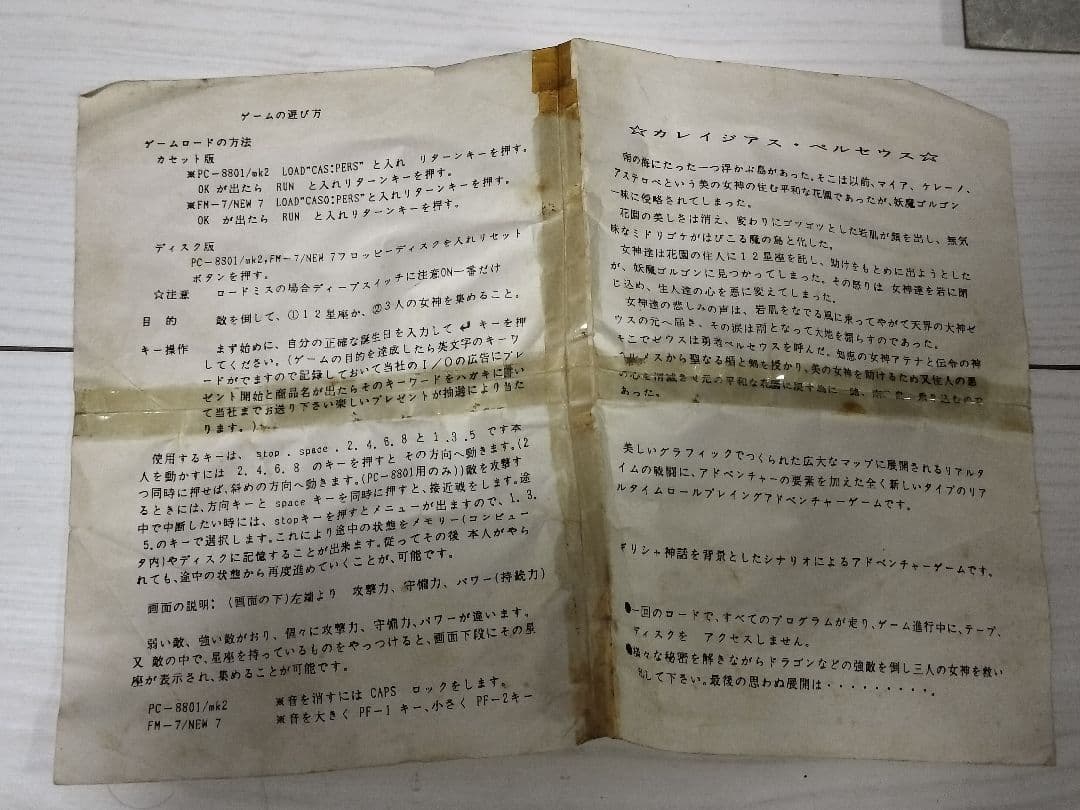 ゲームの遊び方
ゲームロードの方法
カセット版
※PC-8801/mk2 LOAD"CAS:PERS" と入れ リターンキーを押す。
OK が出たら RUN と入れリターンキーを押す。
※FM-7/NEW 7 LOAD"CAS0:PERS"と入れリターンキーを押す。
OK が出たら RUN と入れリターンキーを押す。
ディスク版
PC-8801/mk2,FM-7/NEW 7フロッピーディスクを入れリセット
ボタンを押す。
☆注意 ロードミスの場合ディープスイッチに注意ON一番だけ
目 的 敵を倒して、①12星座か、②3人の女神を集めること。
キー操作 まず始めに、自分の正確な誕生日を入力して ↵ キーを押
してください。(ゲームの目的を達成したら英文字のキーワ
ードがでますので記録しておいて当社のI/Oの広告にプレ
ゼント開始と商品名が出たらそのキーワードをハガキに書い
て当社までお送り下さい楽しいプレゼントが抽選により当た
ります。)
使用するキーは、 stop . space . 2. 4. 6. 8 と 1 . 3 . 5 です本
人を動かすには 2. 4. 6. 8 のキーを押すと その方向へ動きます。(2
つ同時に押せば、斜めの方向へ動きます。(PC-8801用のみ))敵を攻撃す
るときには、方向キーと space キーを同時に押すと、接近戦をします。途
中で中断したい時には、stopキーを押すとメニューが出ますので、1. 3.
5.のキーで選択します。これにより途中の状態をメモリー(コンピュー
タ内)やディスクに記憶することが出来ます。従ってその後 本人がやら
れても、途中の状態から再度進めていくことが、可能です。
画面の説明: (画面の下)左端より 攻撃力、守備力、パワー(持続力)
弱い敵、強い敵がおり、個々に攻撃力、守備力、パワーが違います。
又 敵の中で、星座を持っているものをやっつけると、画面下段にその星
座が表示され、集めることが可能です。
PC-8801/mk2 ※音を消すには CAPS ロックをします。
FM-7/NEW 7 ※音を大きく PF-1 キー、小さく PF-2キー
☆カレイジアス・ペルセウス☆
南の海にたった一つ浮かぶ島があった。そこは以前、マイア、ケレーノ、
アステロペという美の女神の住む平和な花園であったが、妖魔ゴルゴン
一味に侵略されてしまった。
花園の美しさは消え、変わりにゴツゴツとした岩肌が顔を出し、無気
味なミドリゴケがはびこる魔の島と化した。
女神達は花園の住人に12星座を託し、助けをもとめに出ようとした
が、妖魔ゴルゴンに見つかってしまった。その怒りは 女神達を岩に閉
じ込め、住人達の心を悪に変えてしまった。
女神達の悲しみの声は、岩肌をなでる風に乗ってやがて天界の大神ゼ
ウスの元へ届き、その涙は雨となって大地を濡らすのであった。
そこでゼウスは勇者ペルセウスを呼んだ。知恵の女神アテナと伝令の神
ヘルメスから聖なる楯と剣を授かり、美の女神を助けるため又住人の悪
の心を消滅させ元の平和な花園に戻す為に
あった。
美しいグラフィックでつくられた広大なマップに展開されるリアルタ
イムの戦闘に、アドベンチャーの要素を加えた全く新しいタイプのリア
ルタイムロールプレイングアドベンチャーゲームです。
ギリシャ神話を背景としたシナリオによるアドベンチャーゲームです。
●一回のロードで、すべてのプログラムが走り、ゲーム進行中に、テープ、
ディスクを アクセスしません。
●様々な秘密を解きながらドラゴンなどの強敵を倒し三人の女神を救い
出して下さい。最後の思わぬ展開は・・・・・・・・・。